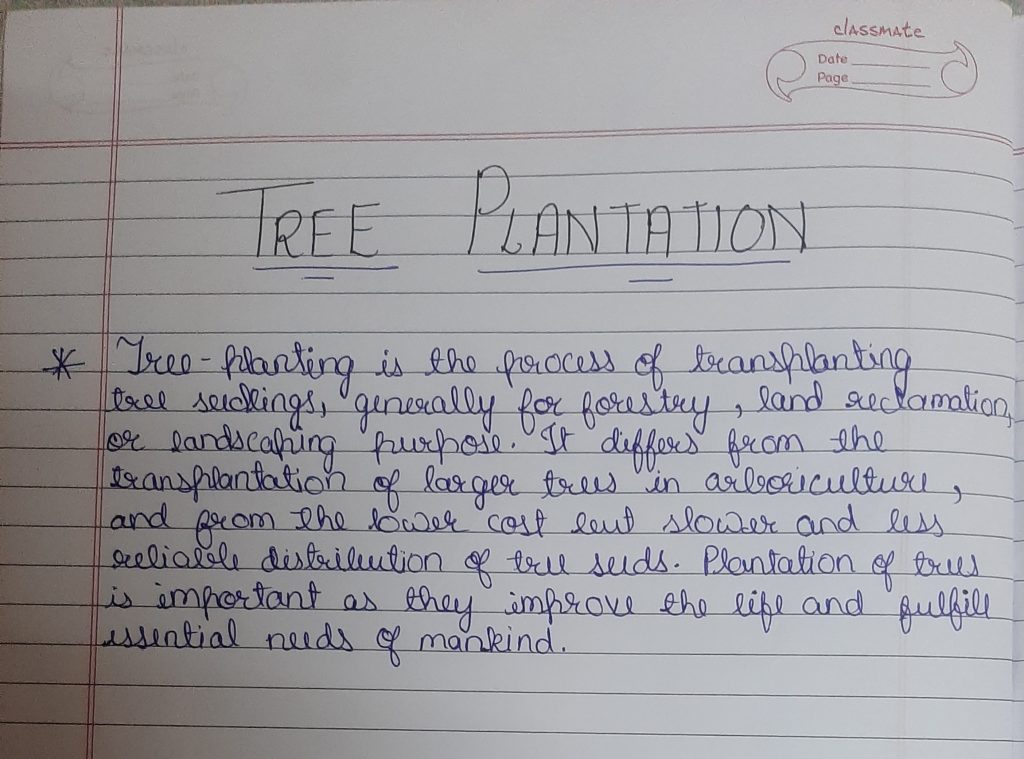 classmate
Date
Page
TREE PLANTATION
* Tree-planting is the process of transplanting
tree seedlings, generally for forestry, land reclamation,
or landscaping purpose. It differs from the
transplantation of larger trees in arboriculture,
and from the lower cost but slower and less
reliable distribution of tree seeds. Plantation of trees
is important as they improve the life and fulfill
essential needs of mankind.